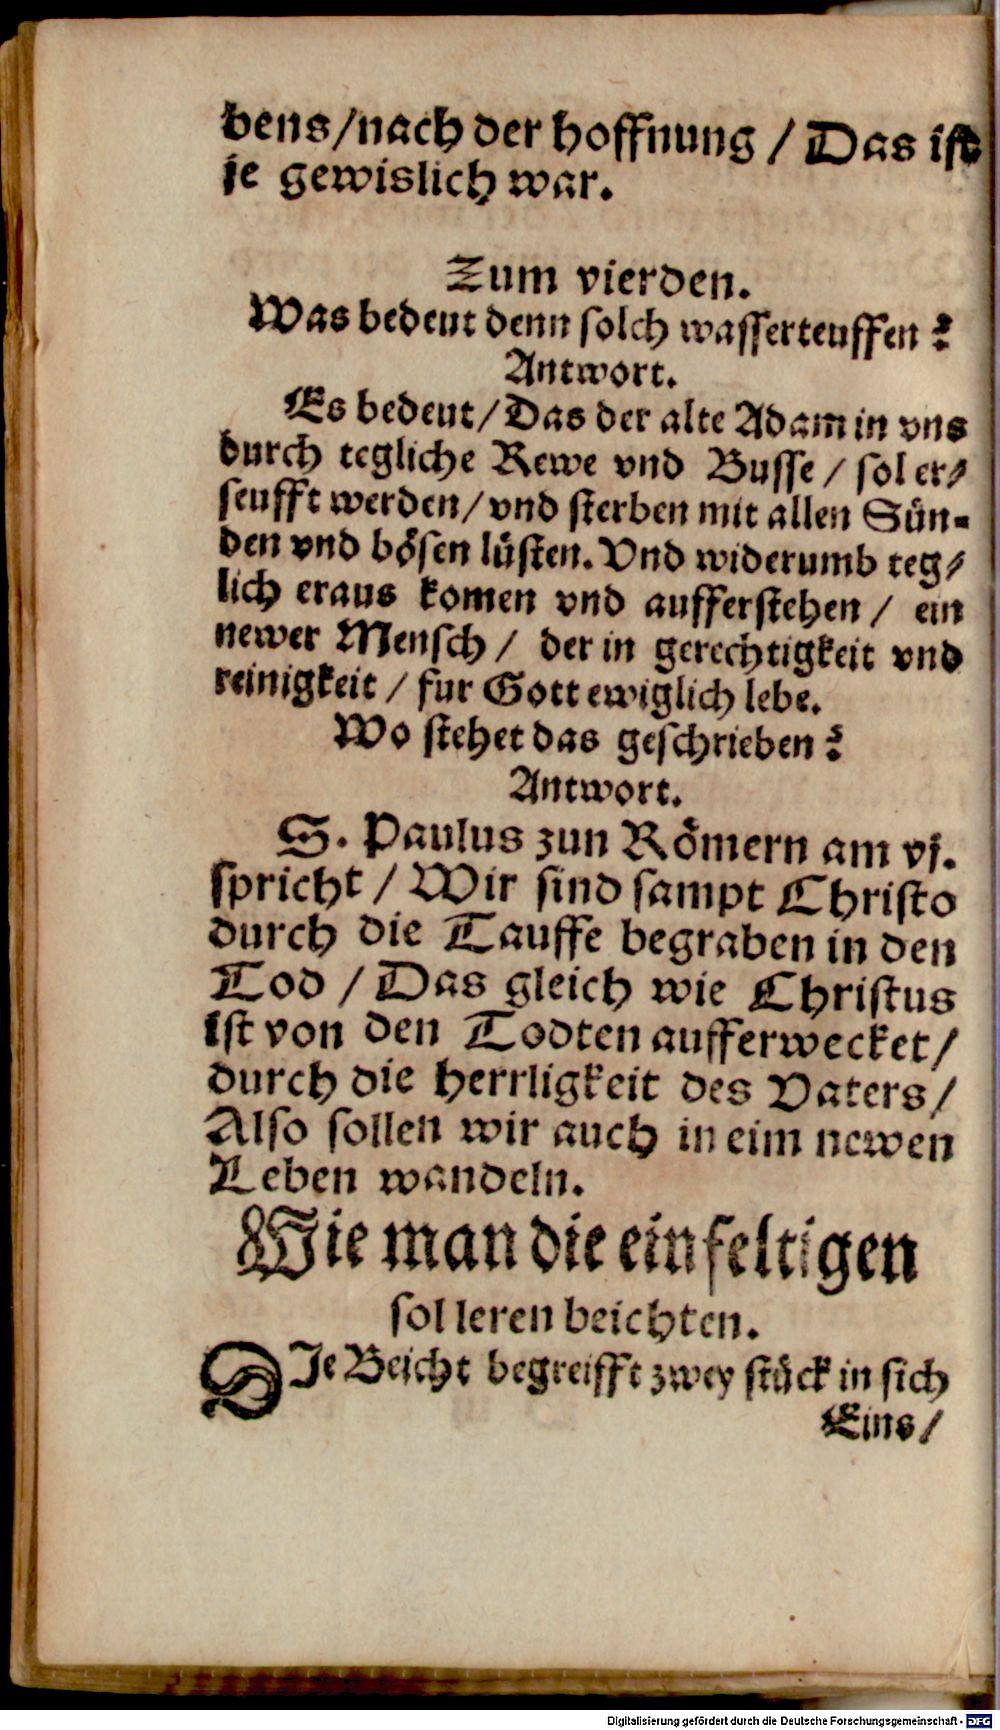 bens/nach der hoffnung / Das ist
je gewislich war.
Zum vierden.
Was bedeut denn solch wasserteuffen?
Antwort.
Es bedeut/Das der alte Adam in vns
durch tegliche Rewe vnd Busse / sol er⸗
seufft werden/vnd sterben mit allen Sün⸗
den vnd bösen lüsten. Vnd widerumb teg⸗
lich eraus komen vnd aufferstehen / ein
newer Mensch / der in gerechtigkeit vnd
reinigkeit / fur Gott ewiglich lebe.
Wo stehet das geschrieben?
Antwort.
S. Paulus zun Römern am vj.
spricht / Wir sind sampt Christo
durch die Tauffe begraben in den
Tod / Das gleich wie Christus
ist von den Todten aufferwecket/
durch die herrligkeit des Vaters/
Also sollen wir auch in eim newen
Leben wandeln.
Wie man die einfeltigen
sol leren beichten.
DIe Beicht begreifft zwey stück in sich
Eins/
Digitalisierung gefördert durch die Deutsche Forschungsgemeinschaft - DFG